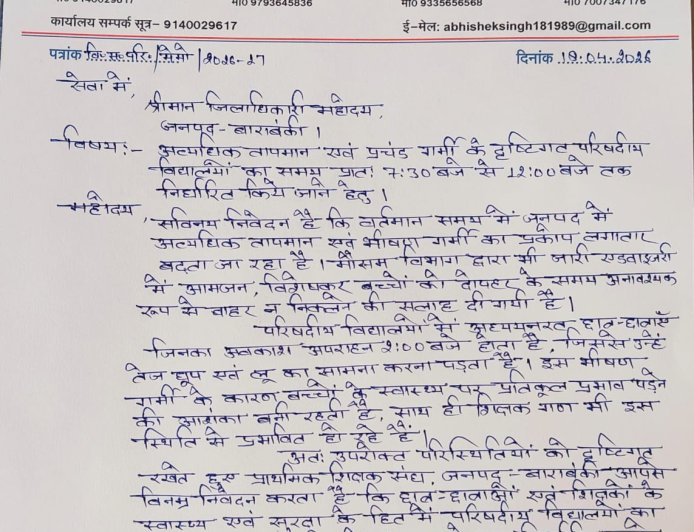 मो0 9793645836 मो0 9335656568 मो0 7007347176
कार्यालय सम्पर्क सूत्र– 9140029617 ई–मेल: abhisheksingh181989@gmail.com
पत्रांक वि.स.परि./मेमो /2026-27 दिनांक 19.04.2026
सेवा में,
श्रीमान जिलाधिकारी महोदय,
जनपद - बाराबंकी।
विषय:- अत्यधिक तापमान एवं प्रचंड गर्मी के दृष्टिगत परिषदीय
विद्यालयों का समय प्रातः 7:30 बजे से 12:00 बजे तक
निर्धारित किये जाने हेतु।
महोदय,
सविनय निवेदन है कि वर्तमान समय में जनपद में
अत्यधिक तापमान एवं भीषण गर्मी का प्रकोप लगातार
बढ़ता जा रहा है। मौसम विभाग द्वारा भी जारी एडवाइजरी
में आमजन, विशेषकर बच्चों को दोपहर के समय अनावश्यक
रूप से बाहर न निकलने की सलाह दी गयी है।
परिषदीय विद्यालयों में अध्ययनरत छात्र-छात्राएँ
जिनका अवकाश अपराह्न 2:00 बजे होता है, जिससे उन्हें
तेज धूप एवं लू का सामना करना पड़ता है। इस भीषण
गर्मी के कारण बच्चों के स्वास्थ्य पर प्रतिकूल प्रभाव पड़ने
की आशंका बनी रहती है, साथ ही शिक्षक गण भी इस
स्थिति से प्रभावित हो रहे हैं।
अतः उपरोक्त परिस्थितियों को दृष्टिगत
रखते हुए प्राथमिक शिक्षक संघ, जनपद - बाराबंकी आपसे
विनम्र निवेदन करता है कि छात्र-छात्राओं एवं शिक्षकों के
स्वास्थ्य एवं सुरक्षा के हित में परिषदीय विद्यालयों का